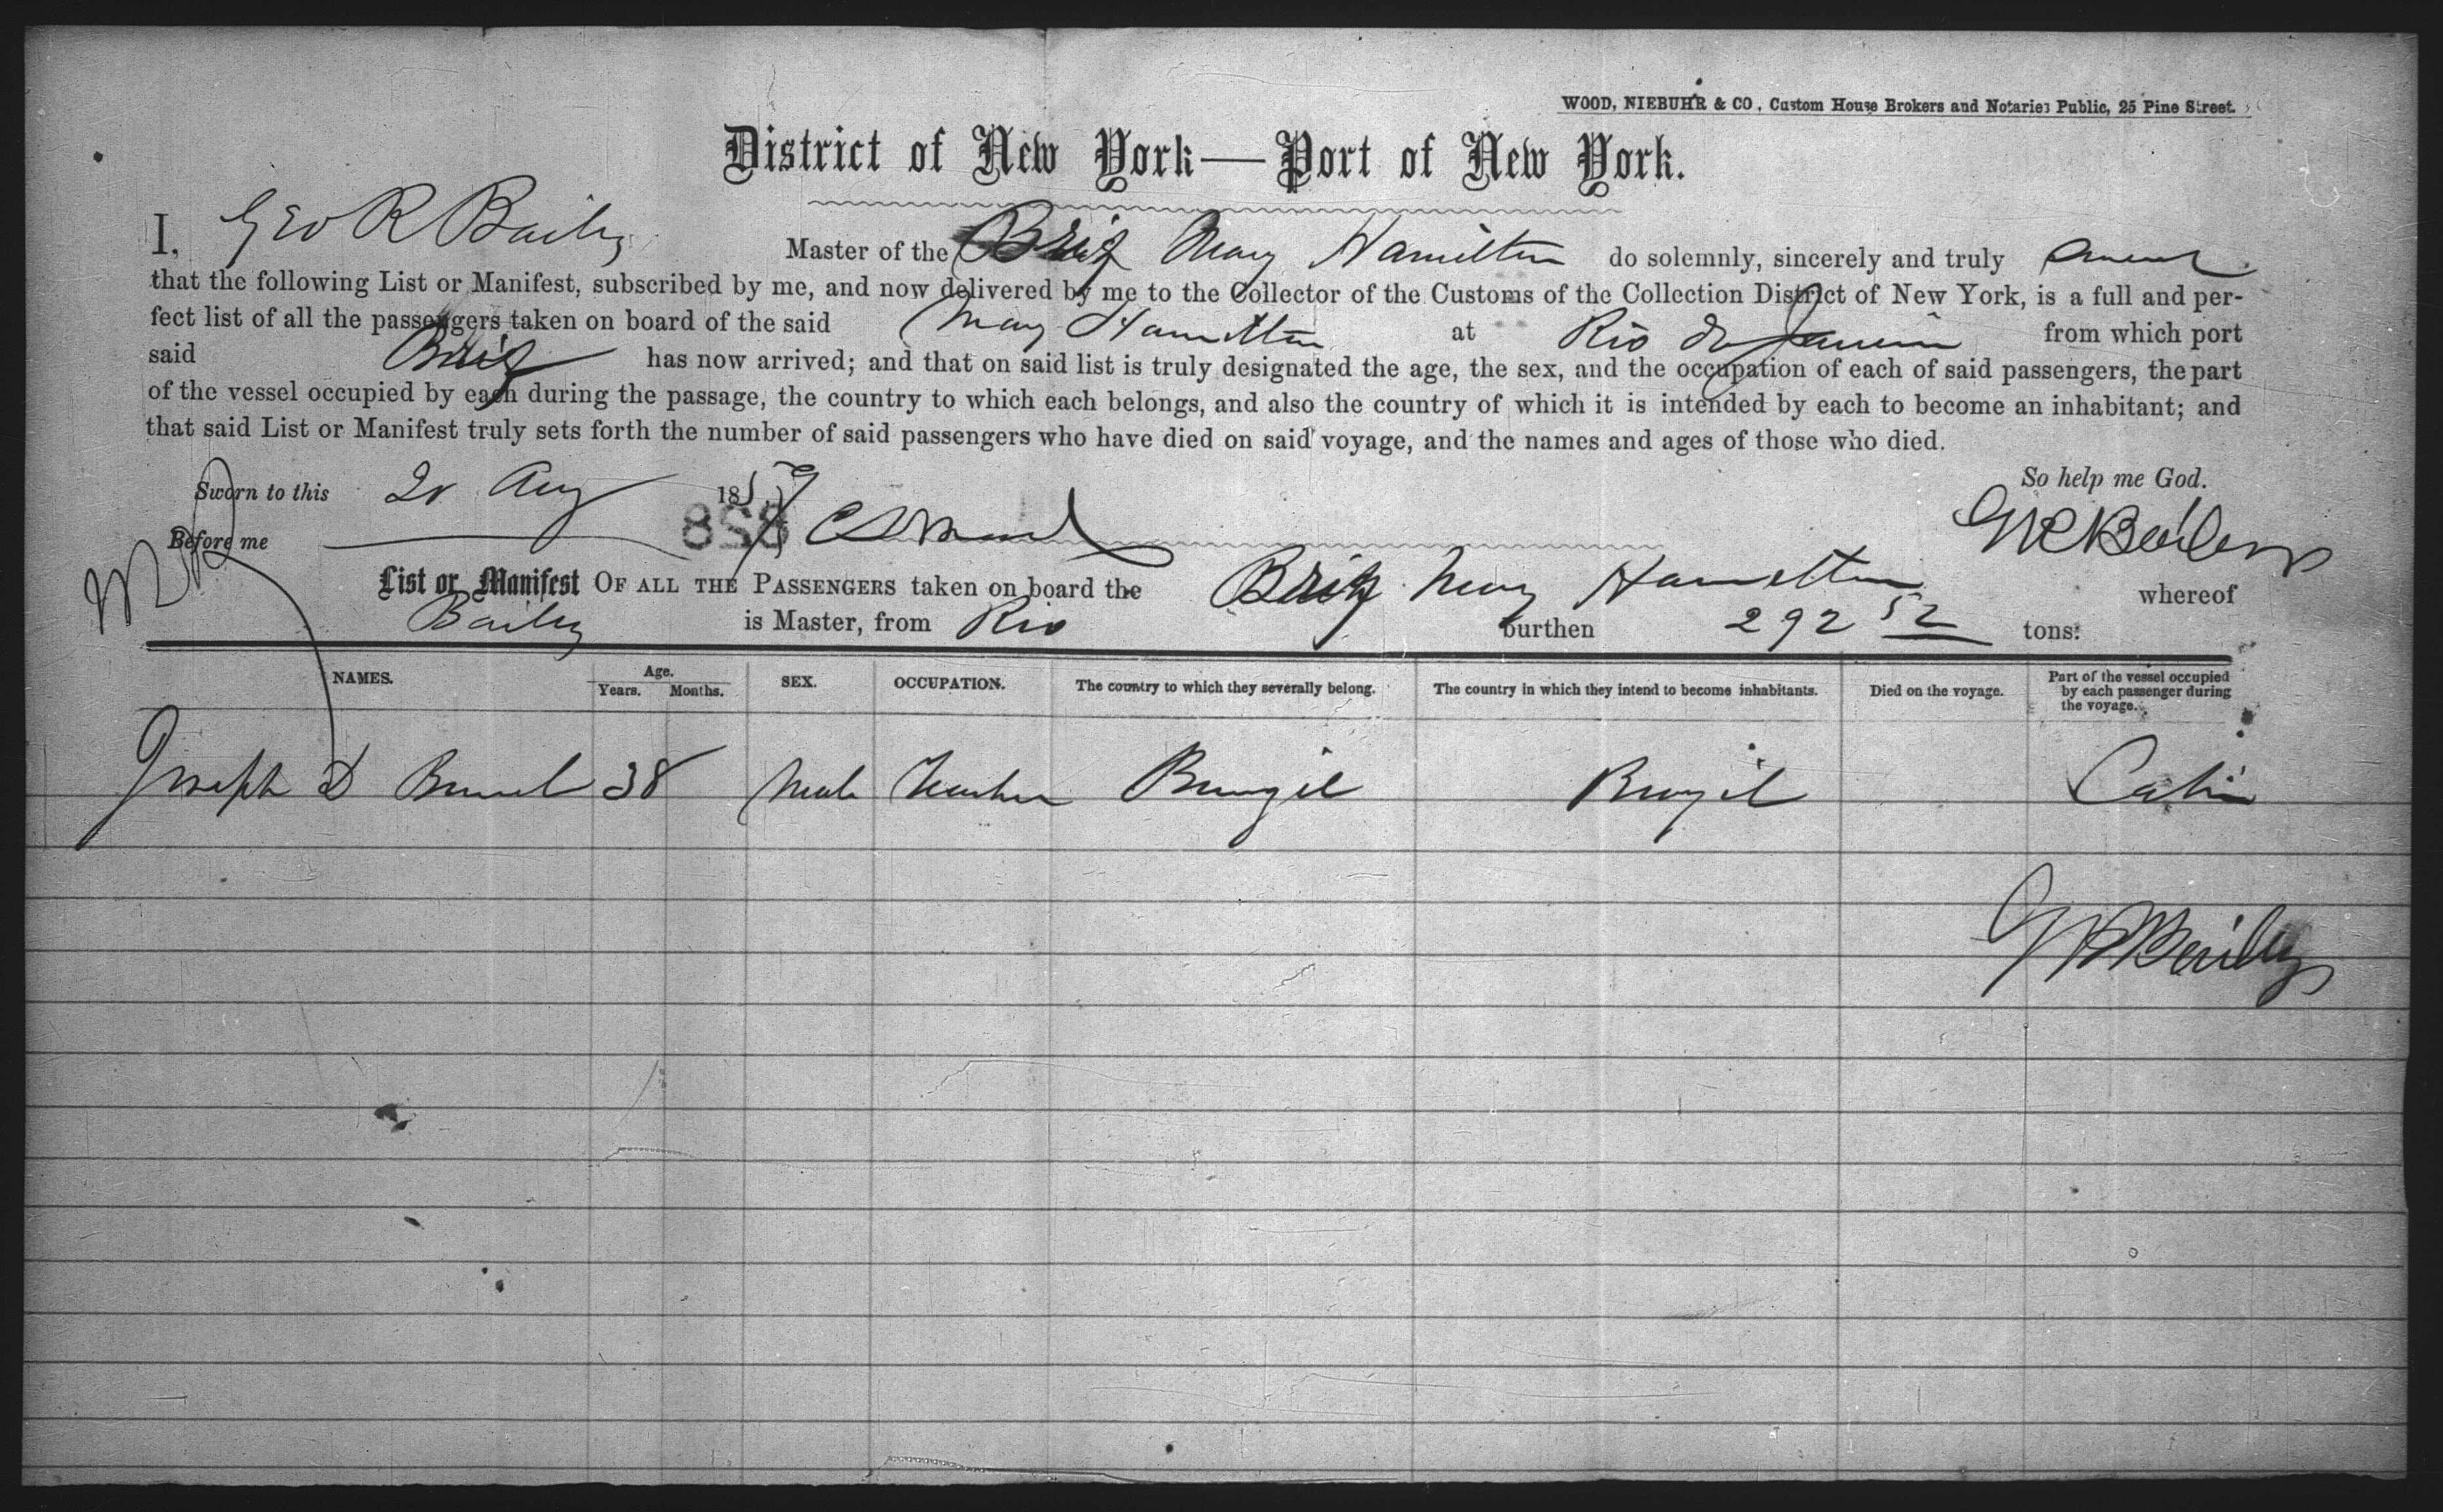 WOOD, NIEBUHR & CO, Custom House Brokers and Notaries Public, 25 Pine Street.
District of New York—Port of New York.
I, Geo R Baily Master of the Brig Mary Hamilton do solemnly, sincerely and truly swear
that the following List or Manifest, subscribed by me, and now delivered by me to the Collector of the Customs of the Collection District of New York, is a full and per-
fect list of all the passengers taken on board of the said Mary Hamilton at Rio de Janeiro from which port
said Brig has now arrived; and that on said list is truly designated the age, the sex, and the occupation of each of said passengers, the part
of the vessel occupied by each during the passage, the country to which each belongs, and also the country of which it is intended by each to become an inhabitant; and
that said List or Manifest truly sets forth the number of said passengers who have died on said voyage, and the names and ages of those who died.
Sworn to this Aug 1859 So help me God.
858
Before me
List or Manifest OF ALL THE PASSENGERS taken on board the Brig Mary Hamilton whereof
Baily is Master, from Rio burthen 292 52 tons:
NAMES. Age. Years. Months. SEX. OCCUPATION. The country to which they severally belong. The country in which they intend to become inhabitants. Died on the voyage. Part of the vessel occupied by each passenger during the voyage.
Joseph D 38 Male Brazil Brazil Cabin
G R Baily